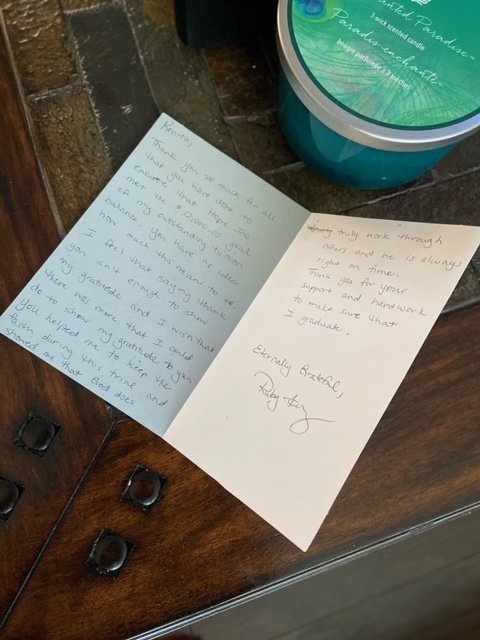 Kenita,
Thank you so much for all
that you have done to
ensure that Hope Inc
met the $12,000.00 goal
of my outstanding tuition
balance. You have no idea
how much this mean to me.
I feel that saying thank
you isn't enough to show
my gratitude and I wish that
there was more that I could
do to show my gratitude to you.
You helped me to keep the
faith during this trial and
showed me that God does
truly work through
others and he is always
right on time.
Thank you for your
support and hardwork
to make sure that
I graduate.
Eternally Grateful,
Ruby
Enchanted Paradise
3 wick scented candle
Paradis enchanté
bougie parfumée à 3 mèches